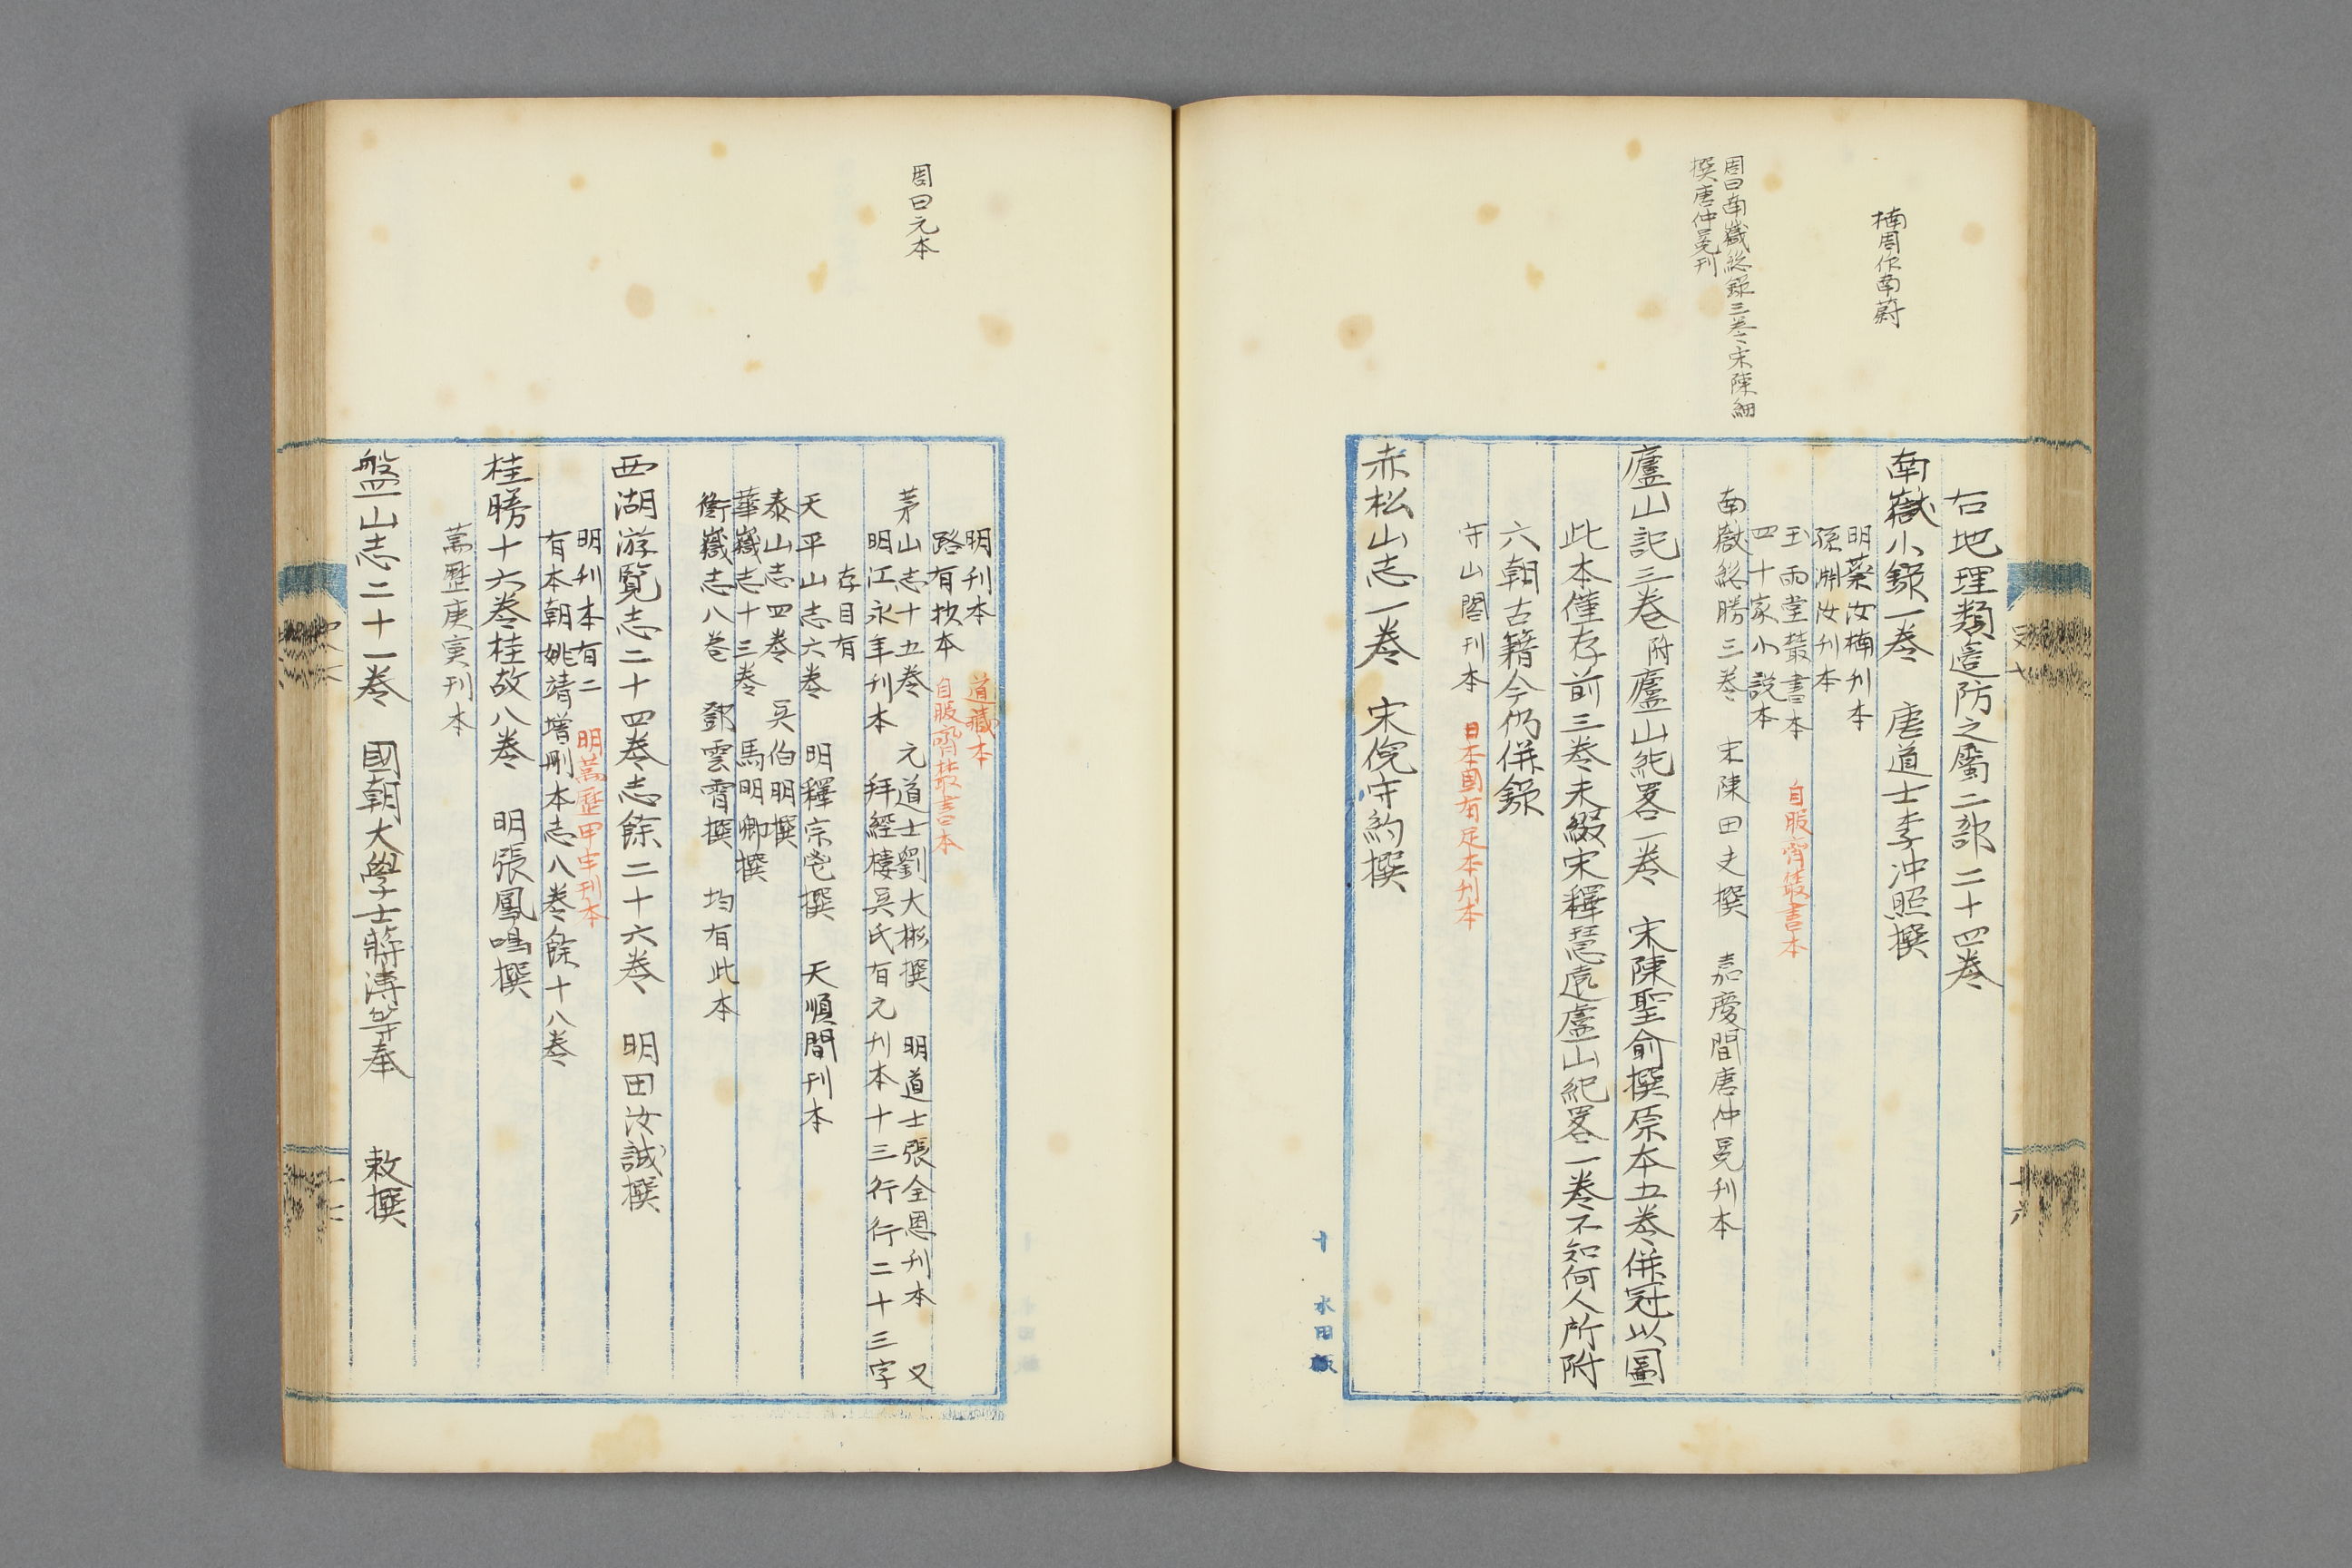 楠周作南蔚
周曰南嶽總錄三卷宋陳細
撰唐仲冕刊
右地理類邊防之屬二部二十四卷
南嶽小錄一卷　唐道士李冲照撰
明葉汝楠刊本
孫淵汝刊本
玉雨堂叢書本　自服齊叢書本
四十家小說本
南嶽總勝三卷　宋陳田夫撰　嘉慶間唐仲冕刊本
廬山記三卷附廬山紀畧一卷　宋陳聖俞撰原本五卷併冠以圖
此本僅存前三卷末綴宋釋慧遠廬山紀畧一卷不知何人所附
六朝古籍今仍併錄
守山閣刊本　日本國有足本刊本
赤松山志一卷　宋倪守約撰
十　水田版
周曰元本
明刊本　道藏本
路有抄本　自服齊叢書本
茅山志十五卷　元道士劉大彬撰　明道士張全恩刊本　又
明江永年刊本　拜經樓吳氏有元刊本十三行行二十三字
存目有
天平山志六卷　明釋宗岜撰　天順間刊本
泰山志四卷　吳伯明撰
華嶽志十三卷　馬明卿撰
衡嶽志八卷　鄧雲霄撰　均有此本
西湖游覽志二十四卷志餘二十六卷　明田汝誠撰
明刊本有二　明萬歷甲申刊本
有本朝姚靖增刪本志八卷餘十八卷
桂勝十六卷桂故八卷　明張鳳鳴撰
萬歷庚寅刊本
盤山志二十一卷　國朝大學士蔣溥等奉　敕撰